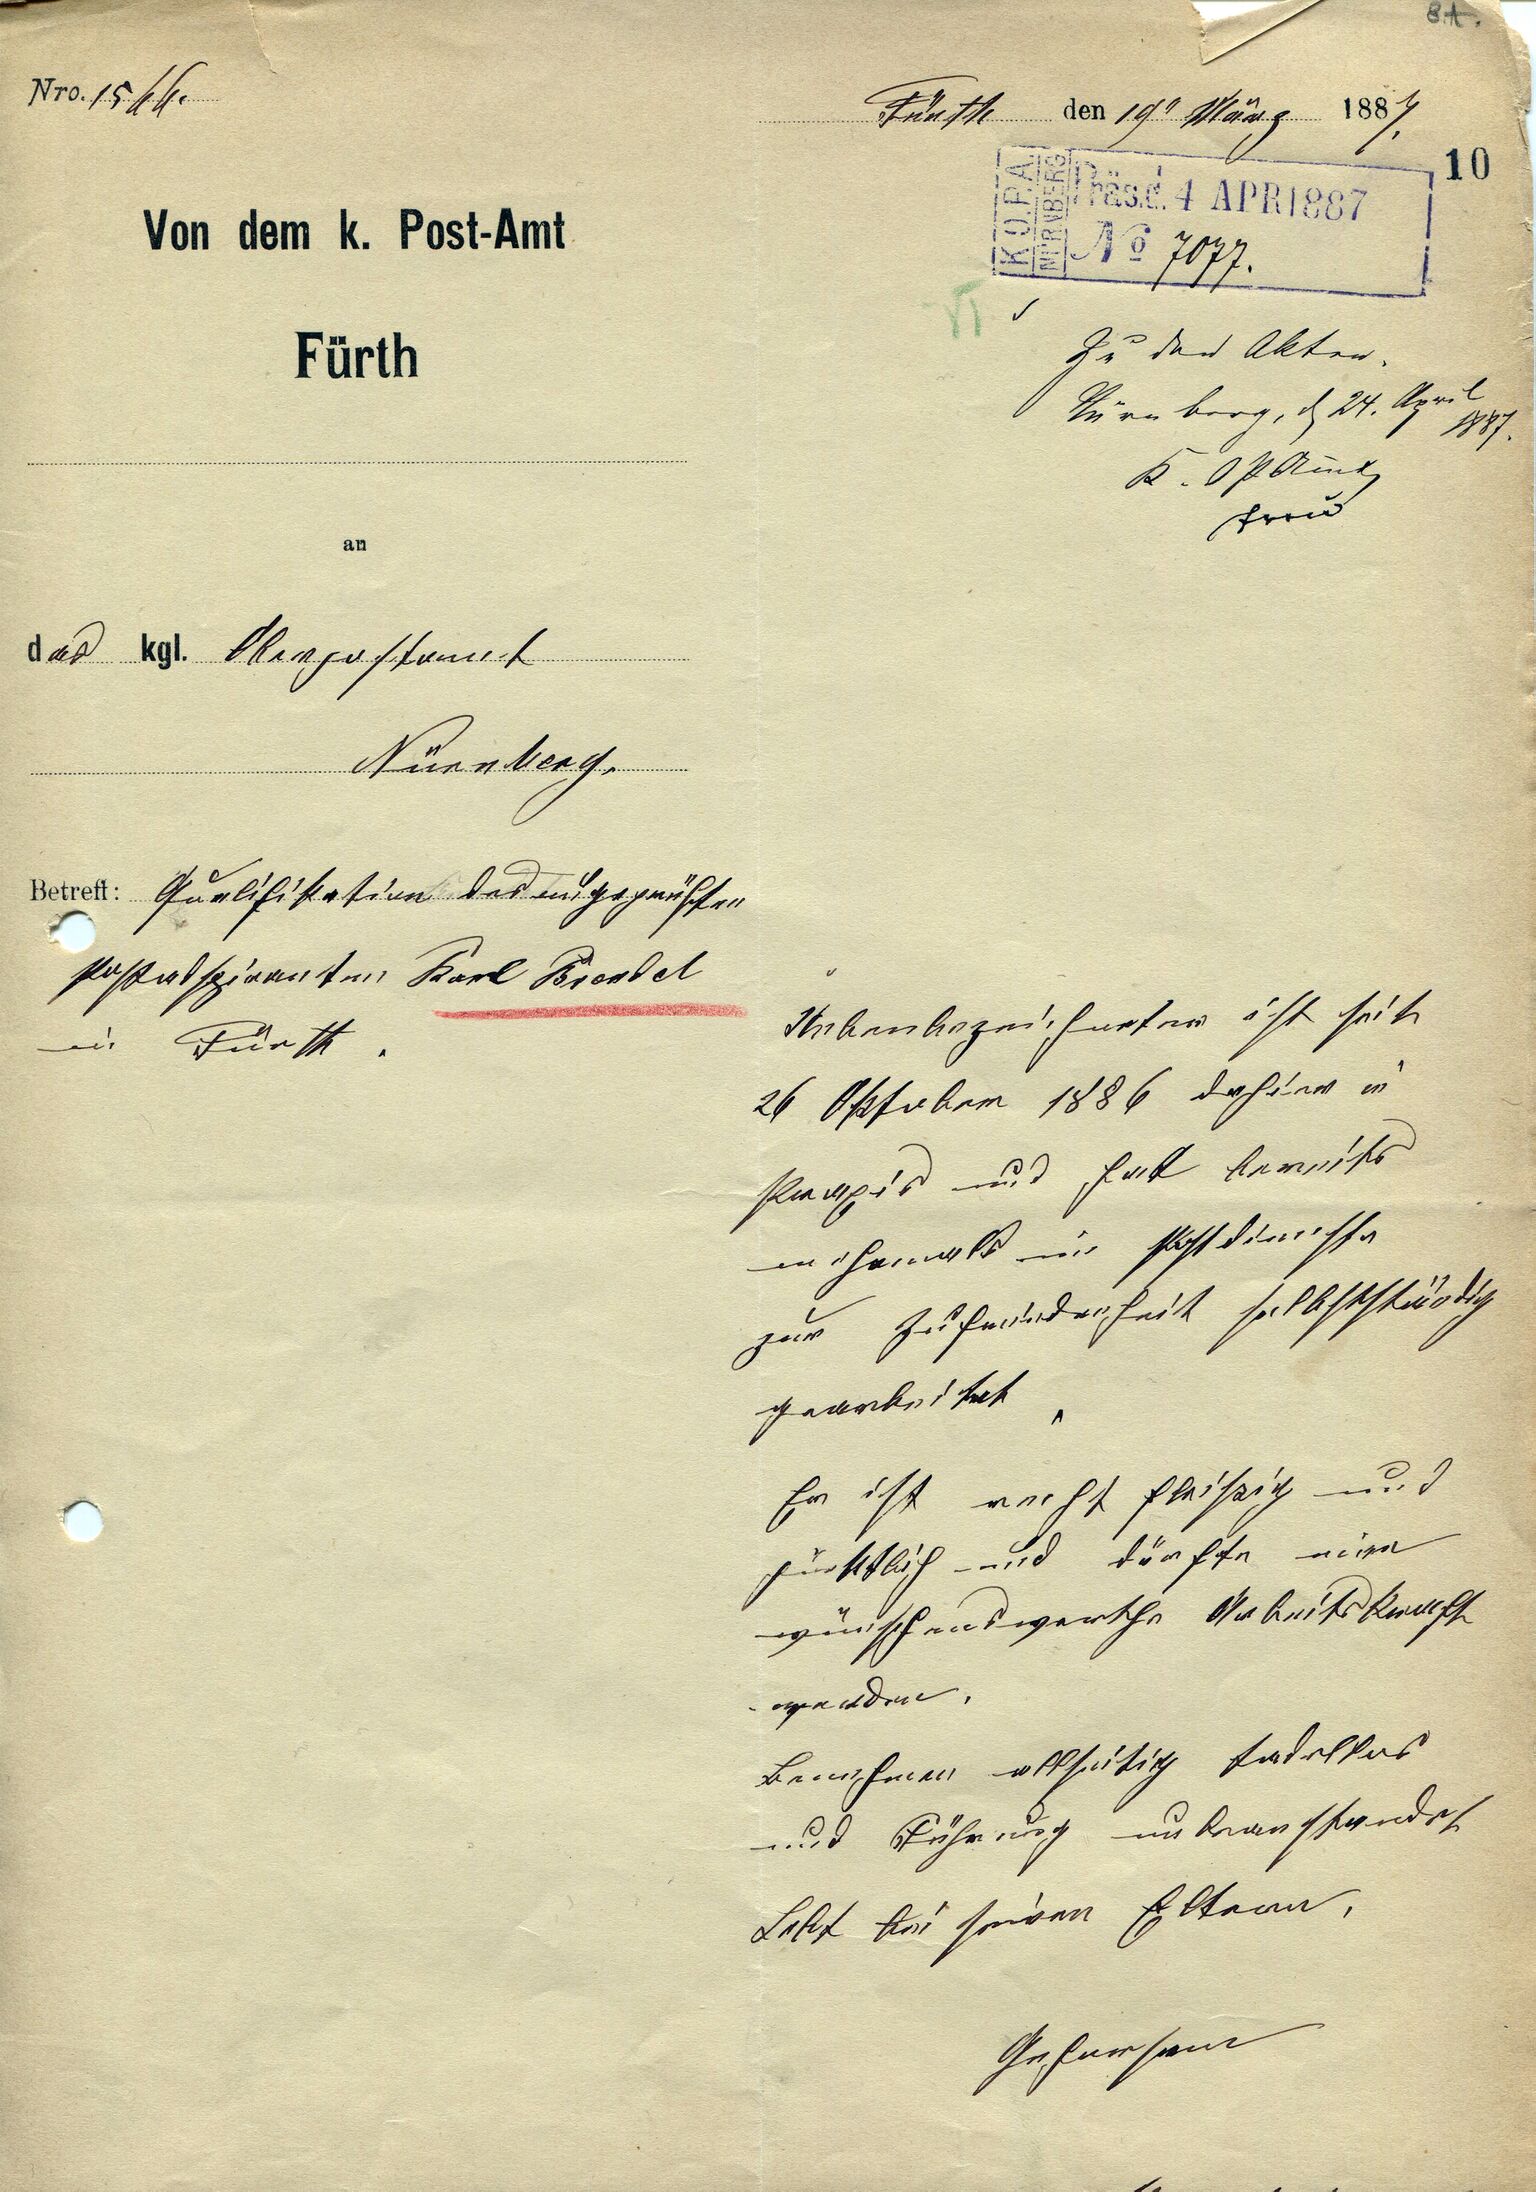 8A.
Nro. 1566.
Fürth den 19t März 1887.
10
K.O.P.A.
NÜRNBERG
Präs. d. 4 APR 1887
No 7077.
Zu den Akten.
Nürnberg, d 24. April
1887.
K. OPAmt
Von dem k. Post-Amt
Fürth
an
das kgl. Oberpostamt
Nürnberg.
Betreff: Qualifikation des ungeprüften
Postadspiranten Karl Biendel
in Fürth.
Nebenbezeichneter ist seit
26 Oktober 1886 dahier in
Praxis und hat bereits
mehrmals im Postdienste
zur Zufriedenheit selbstständig
gearbeitet.
Er ist recht fleißig und
pünktlich und dürfte eine
wünschenswerthe Arbeitskraft
werden.
Benehmen allseitig tadellos
und Führung unbeanstandet
Lebt bei seinen Eltern.
Gehorsam